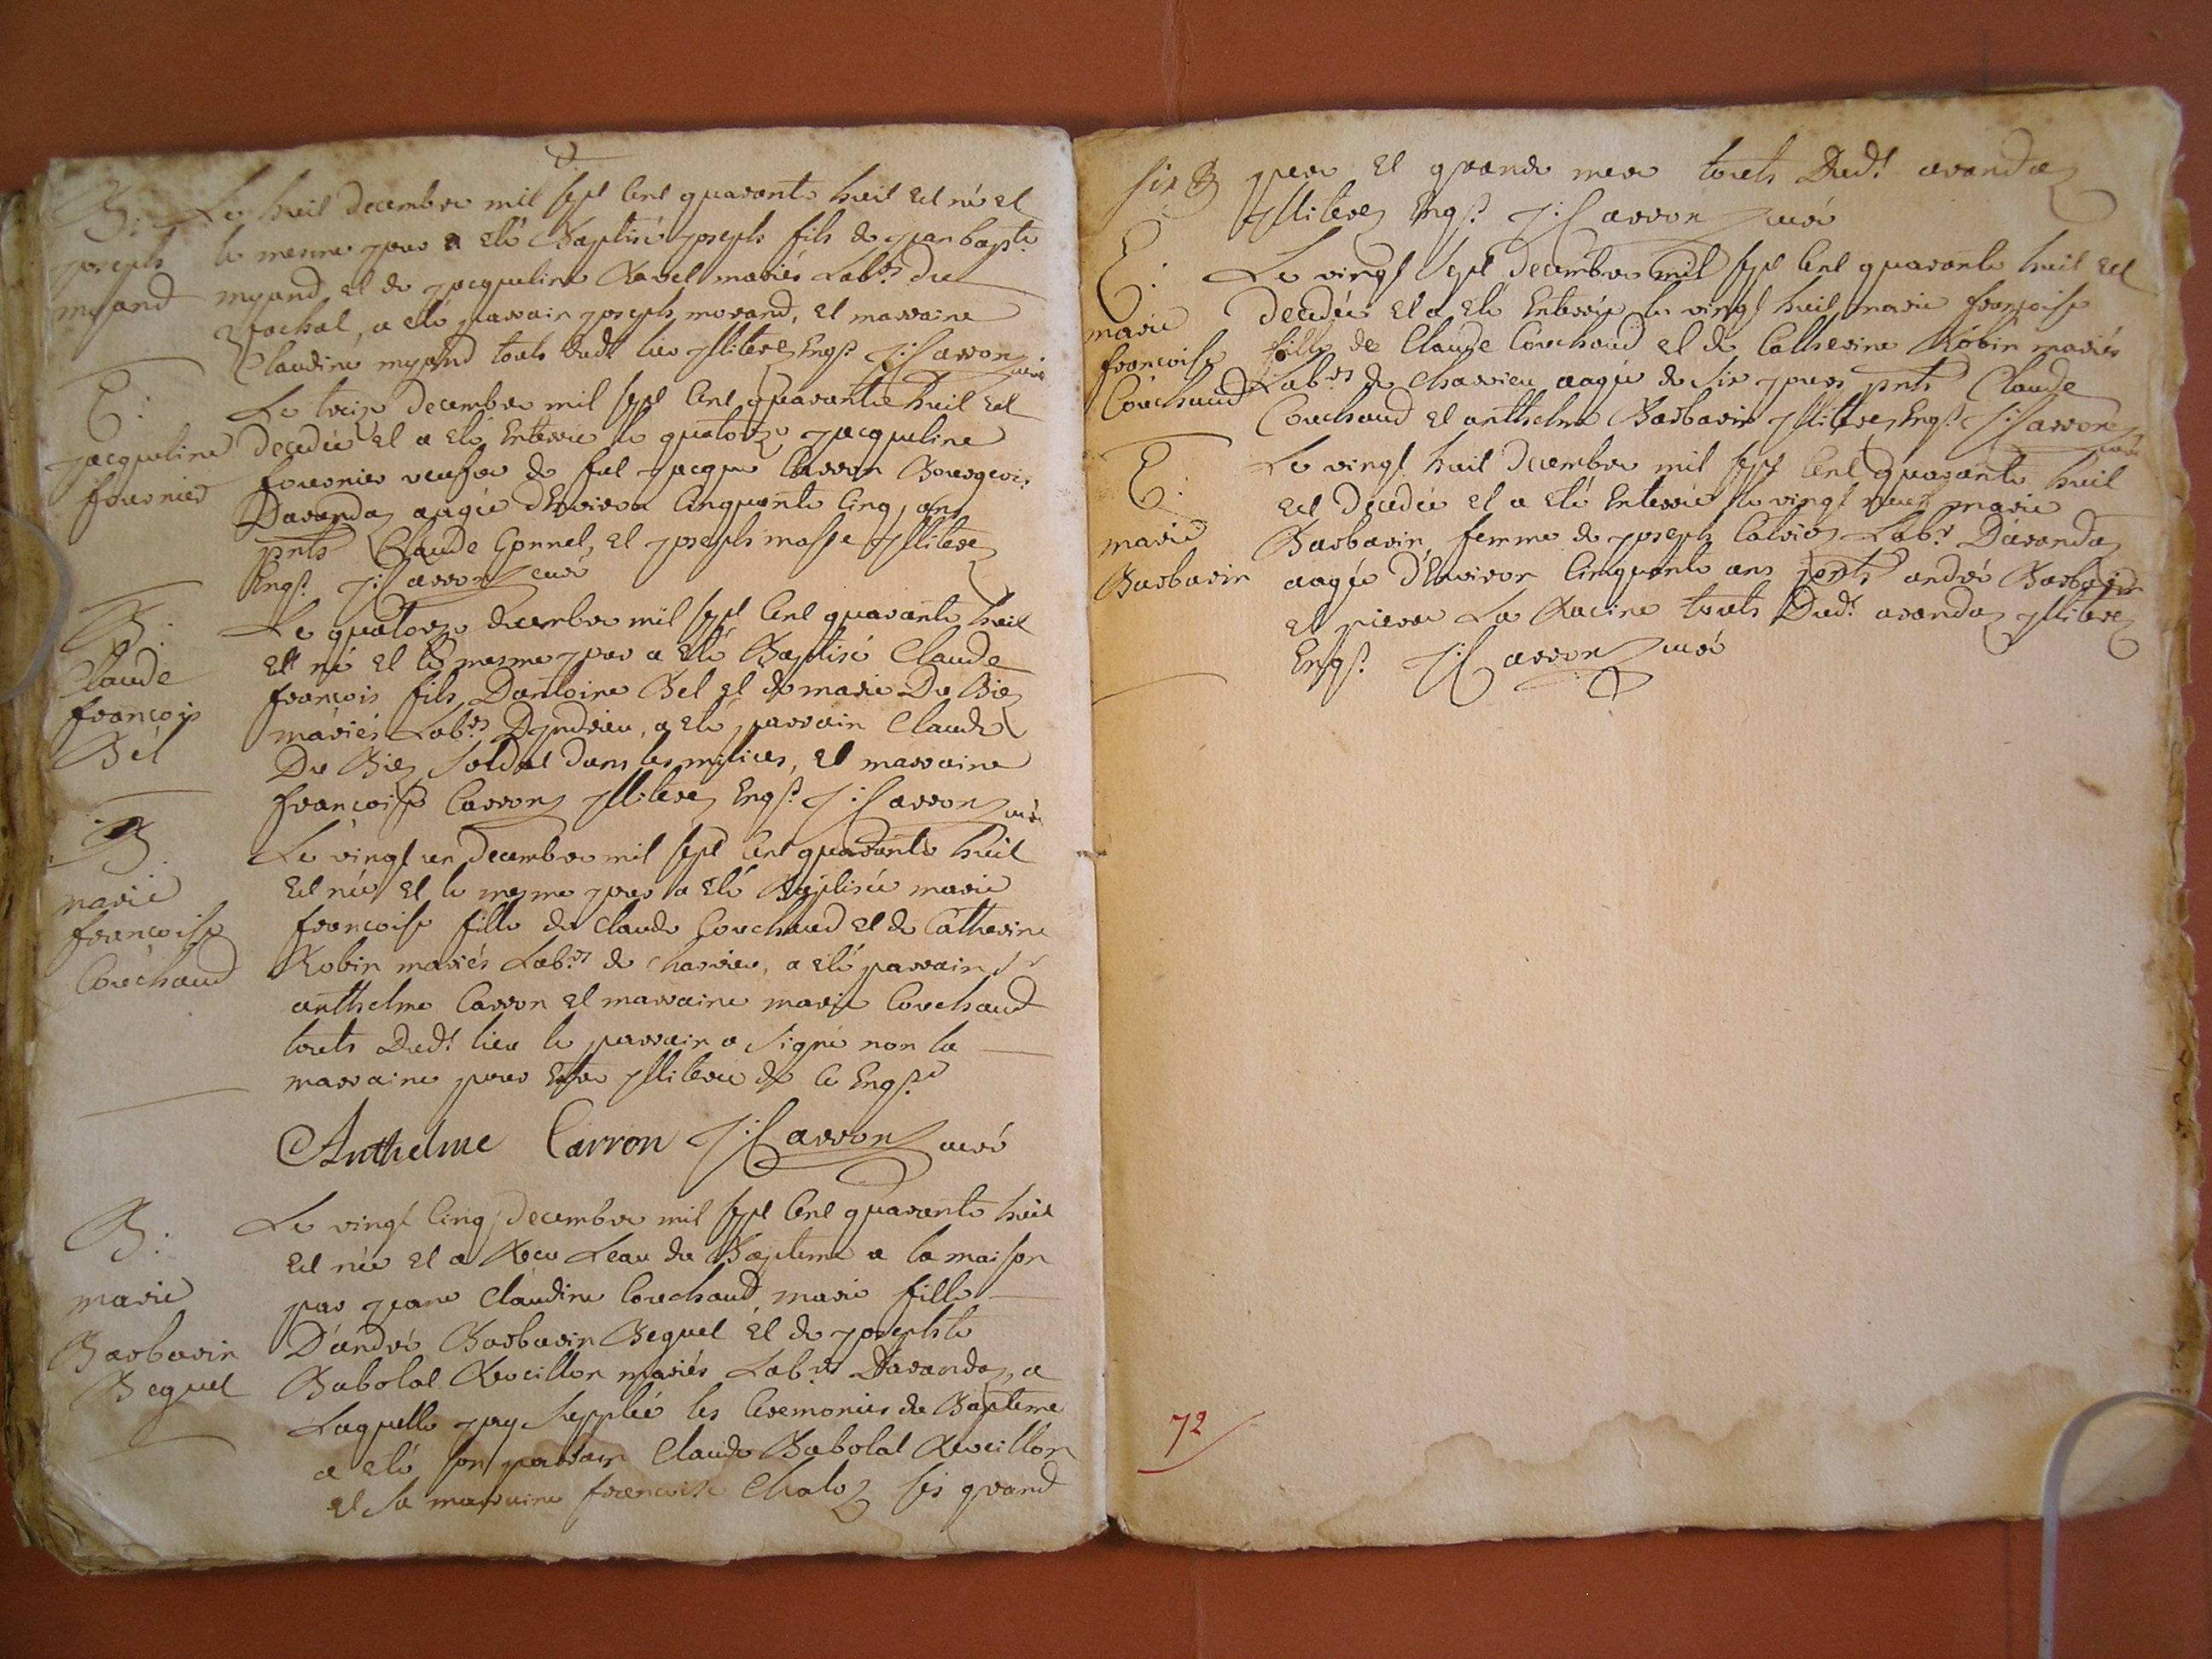 B:
Joseph
myand
Le huit decembre mil sept cent quarante huit est né et
le mesme jour a eté Baptisé joseph fils de jean bapte
myand et de jacqueline Ravet mariés Labrs du
rochat, a eté parrain joseph morand, et marraine
Claudine myand touts dudt lieu jlliterez Engst J: Carron curé
E:
jacqueline
fournier
Le treize decembre mil sept cent quarante huit est
decedée et a eté Enterrée le quatorze jacqueline
fournier veufve de fut jacque Carron Bourgeois
Davandaz aagée dEnviron Cinquante Cinq ans
pnts Claude Gonnet, et joseph masse jlliterez
Engst J: Carron curé
B:
Claude
françois
Bel
Le quatorze decembre mil sept cent quarante huit
est né et le mesme jour a eté Baptisé Claude
françois fils Dantoine Bel et de marie Du Biez
mariés Labrs Dyndrieu, a eté parrain Claude
Du Biez Soldat dans les milices, et marraine
françoise Carron jlliterez Engst J: Carron curé
B.
marie
françoise
Couchaud
Le vingt un decembre mil sept cent quarante huit
est née et le mesme jour a eté Baptisée marie
françoise fille de Claude Couchaud et de Catherine
Robin mariés Labrs de charvieu, a eté parrain sr
anthelme Carron et marraine marie Couchaud
touts Dudt lieu le parrain a signé non la
marraine pour Estre jlliterée de ce Engse
Anthelme Carron J: Carron curé
B:
marie
Barbarin
Beguet
Le vingt Cinq decembre mil sept cent quarante huit
est née et a Recu Leau du Bapteme a la maison
par jeane Claudine Couchaud marie fille
D'andré Barbarin Beguet et de josephte
Babolat Reveillon mariés Labrs Davandaz, a
Laquelle jay Supplée les Ceremonies du Bapteme
a eté son parrain Claude Babolat Reveillon
et sa marraine francoise Chaloz ses grand
six B pere et grande mere touts Dudt avandaz
jlliterez Engst J: Carron curé
E:
marie
françoise
Couchaud
Le vingt sept decembre mil sept cent quarante huit est
decedée et a eté Enterrée le vingt huit marie françoise
fille de Claude Couchaud et de Catherine Robin mariés
Labrs de charvieu aagée de six jours pnts Claude
Couchaud et anthelme Barbarin jlliterez Engst J: Carron curé
E:
marie
Barbarin
Le vingt huit decembre mil sept cent quarante huit
est decedée et a eté Enterrée le vingt neuf marie
Barbarin femme de joseph Calvioz Labr Davandaz
aagée d'Environ Cinquante ans pnts andré Barbarin
et pierre La Racine touts Dudt avandaz jlliterez
Engst J: Carron curé
72